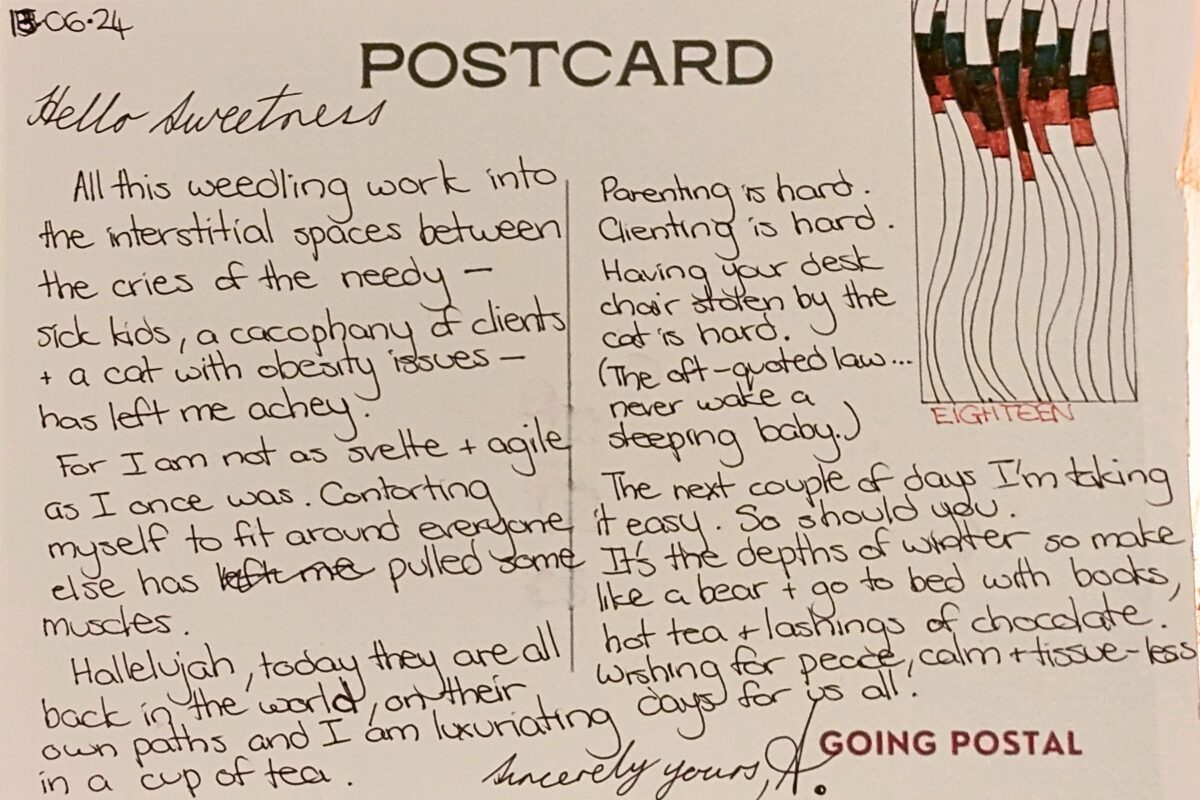 13-06-24
POSTCARD
Hello Sweetness
All this weedling work into
the interstitial spaces between
the cries of the needy —
sick kids, a cacophany of clients
+ a cat with obesity issues —
has left me achey.
For I am not as svelte + agile
as I once was. Contorting
myself to fit around everyone
else has left me pulled some
muscles.
Hallelujah, today they are all
back in the world, on their
own paths and I am luxuriating
in a cup of tea.
Parenting is hard.
Clienting is hard.
Having your desk
chair stolen by the
cat is hard.
(The oft-quoted law...
never wake a
sleeping baby.)
The next couple of days I'm taking
it easy. So should you.
It's the depths of winter so make
like a bear + go to bed with books,
hot tea + lashings of chocolate.
Wishing for peace, calm + tissue-less
days for us all!
Sincerely yours, A.
EIGHTEEN
GOING POSTAL